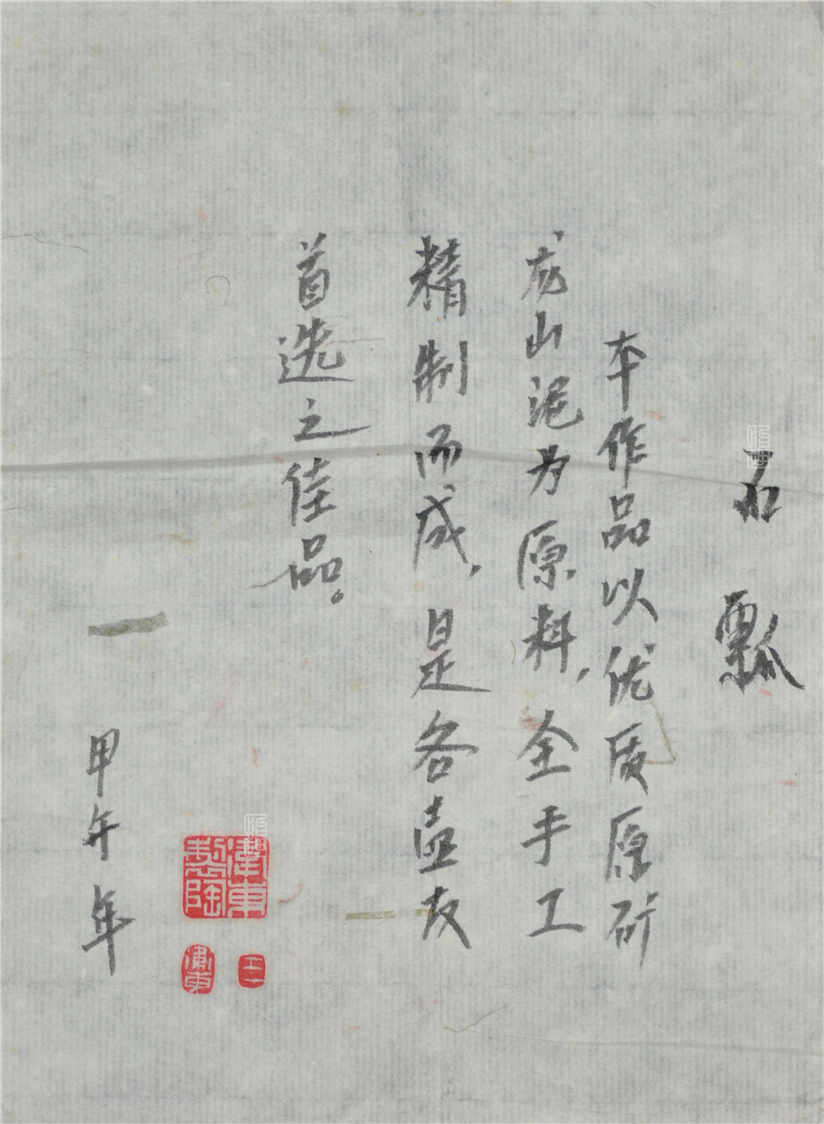 石瓢
本作品以优质原矿
龙山泥为原料,全手工
精制而成,是各壶友
首选之佳品。
甲午年